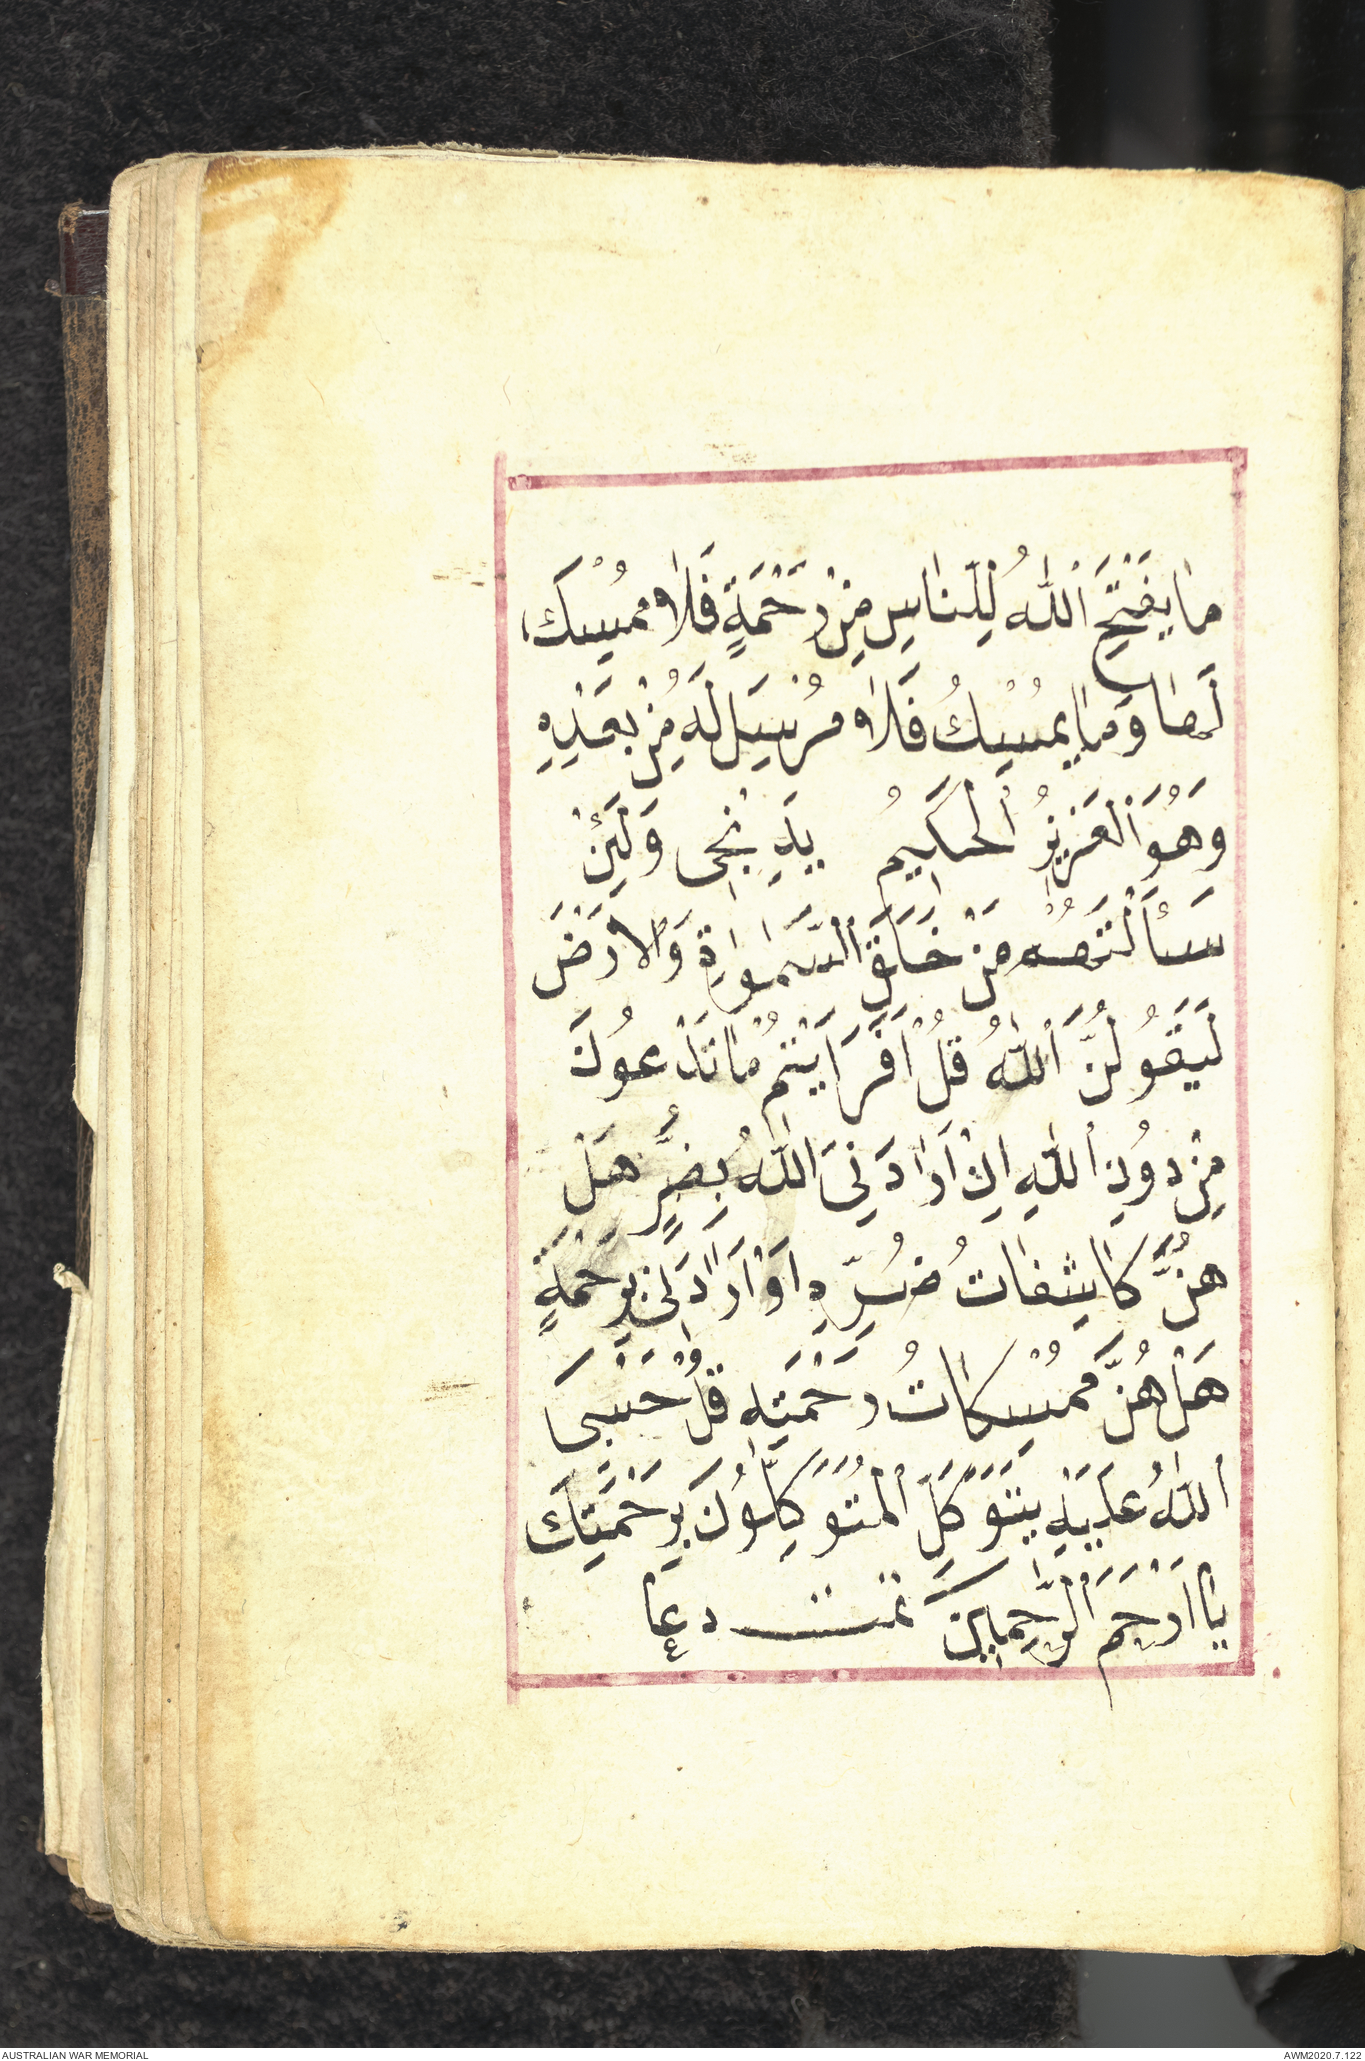 مَا يَفْتَحِ اَللّٰهُ لِلنَّاسِ مِنْ رَحْمَةٍ فَلَا مُمْسِكَ
لَهَا وَمَا يُمْسِكُ فَلَا مُرْسِلَ لَهُ مِنْ بَعْدِهِ
وَهُوَ اَلْعَزِيزُ اُلْحَكِيمُ يدِ نْجِى وَلَئِنْ
سَئَألْتَهُمْ مَنْ خَلَقَ السَّمٰوٰاةِ وَالاَرْضَ
لَيَقُولُنَّ اَللّٰهُ قُلْ اَفَرَاَيْتُمْ مٰا تَدْعُونَ
مِنْ دُونِ اللّٰهِ اِنْ اَرٰادَنِىَ اللّٰهُ بِضُرٍّ هَلْ
هُنَّ كٰاشِفٰاتُ ضُرِّهِ اَوْ اَرٰادَنِى بِرَحْمَةٍ
هَلْ هُنَّ مُمْسِكٰاتُ رَحْمَتِهِ قُلْ حَسْبِىَ
اللّٰهُ عَلَيْهِ يَتَوَكَّلُ الْمُتَوَكِّلُونَ بِرَحْمَتِكَ
يٰا اَرْحَمَ الرّٰحِمِينَ تمت دعا
AUSTRALIAN WAR MEMORIAL
AWM2020.7.122